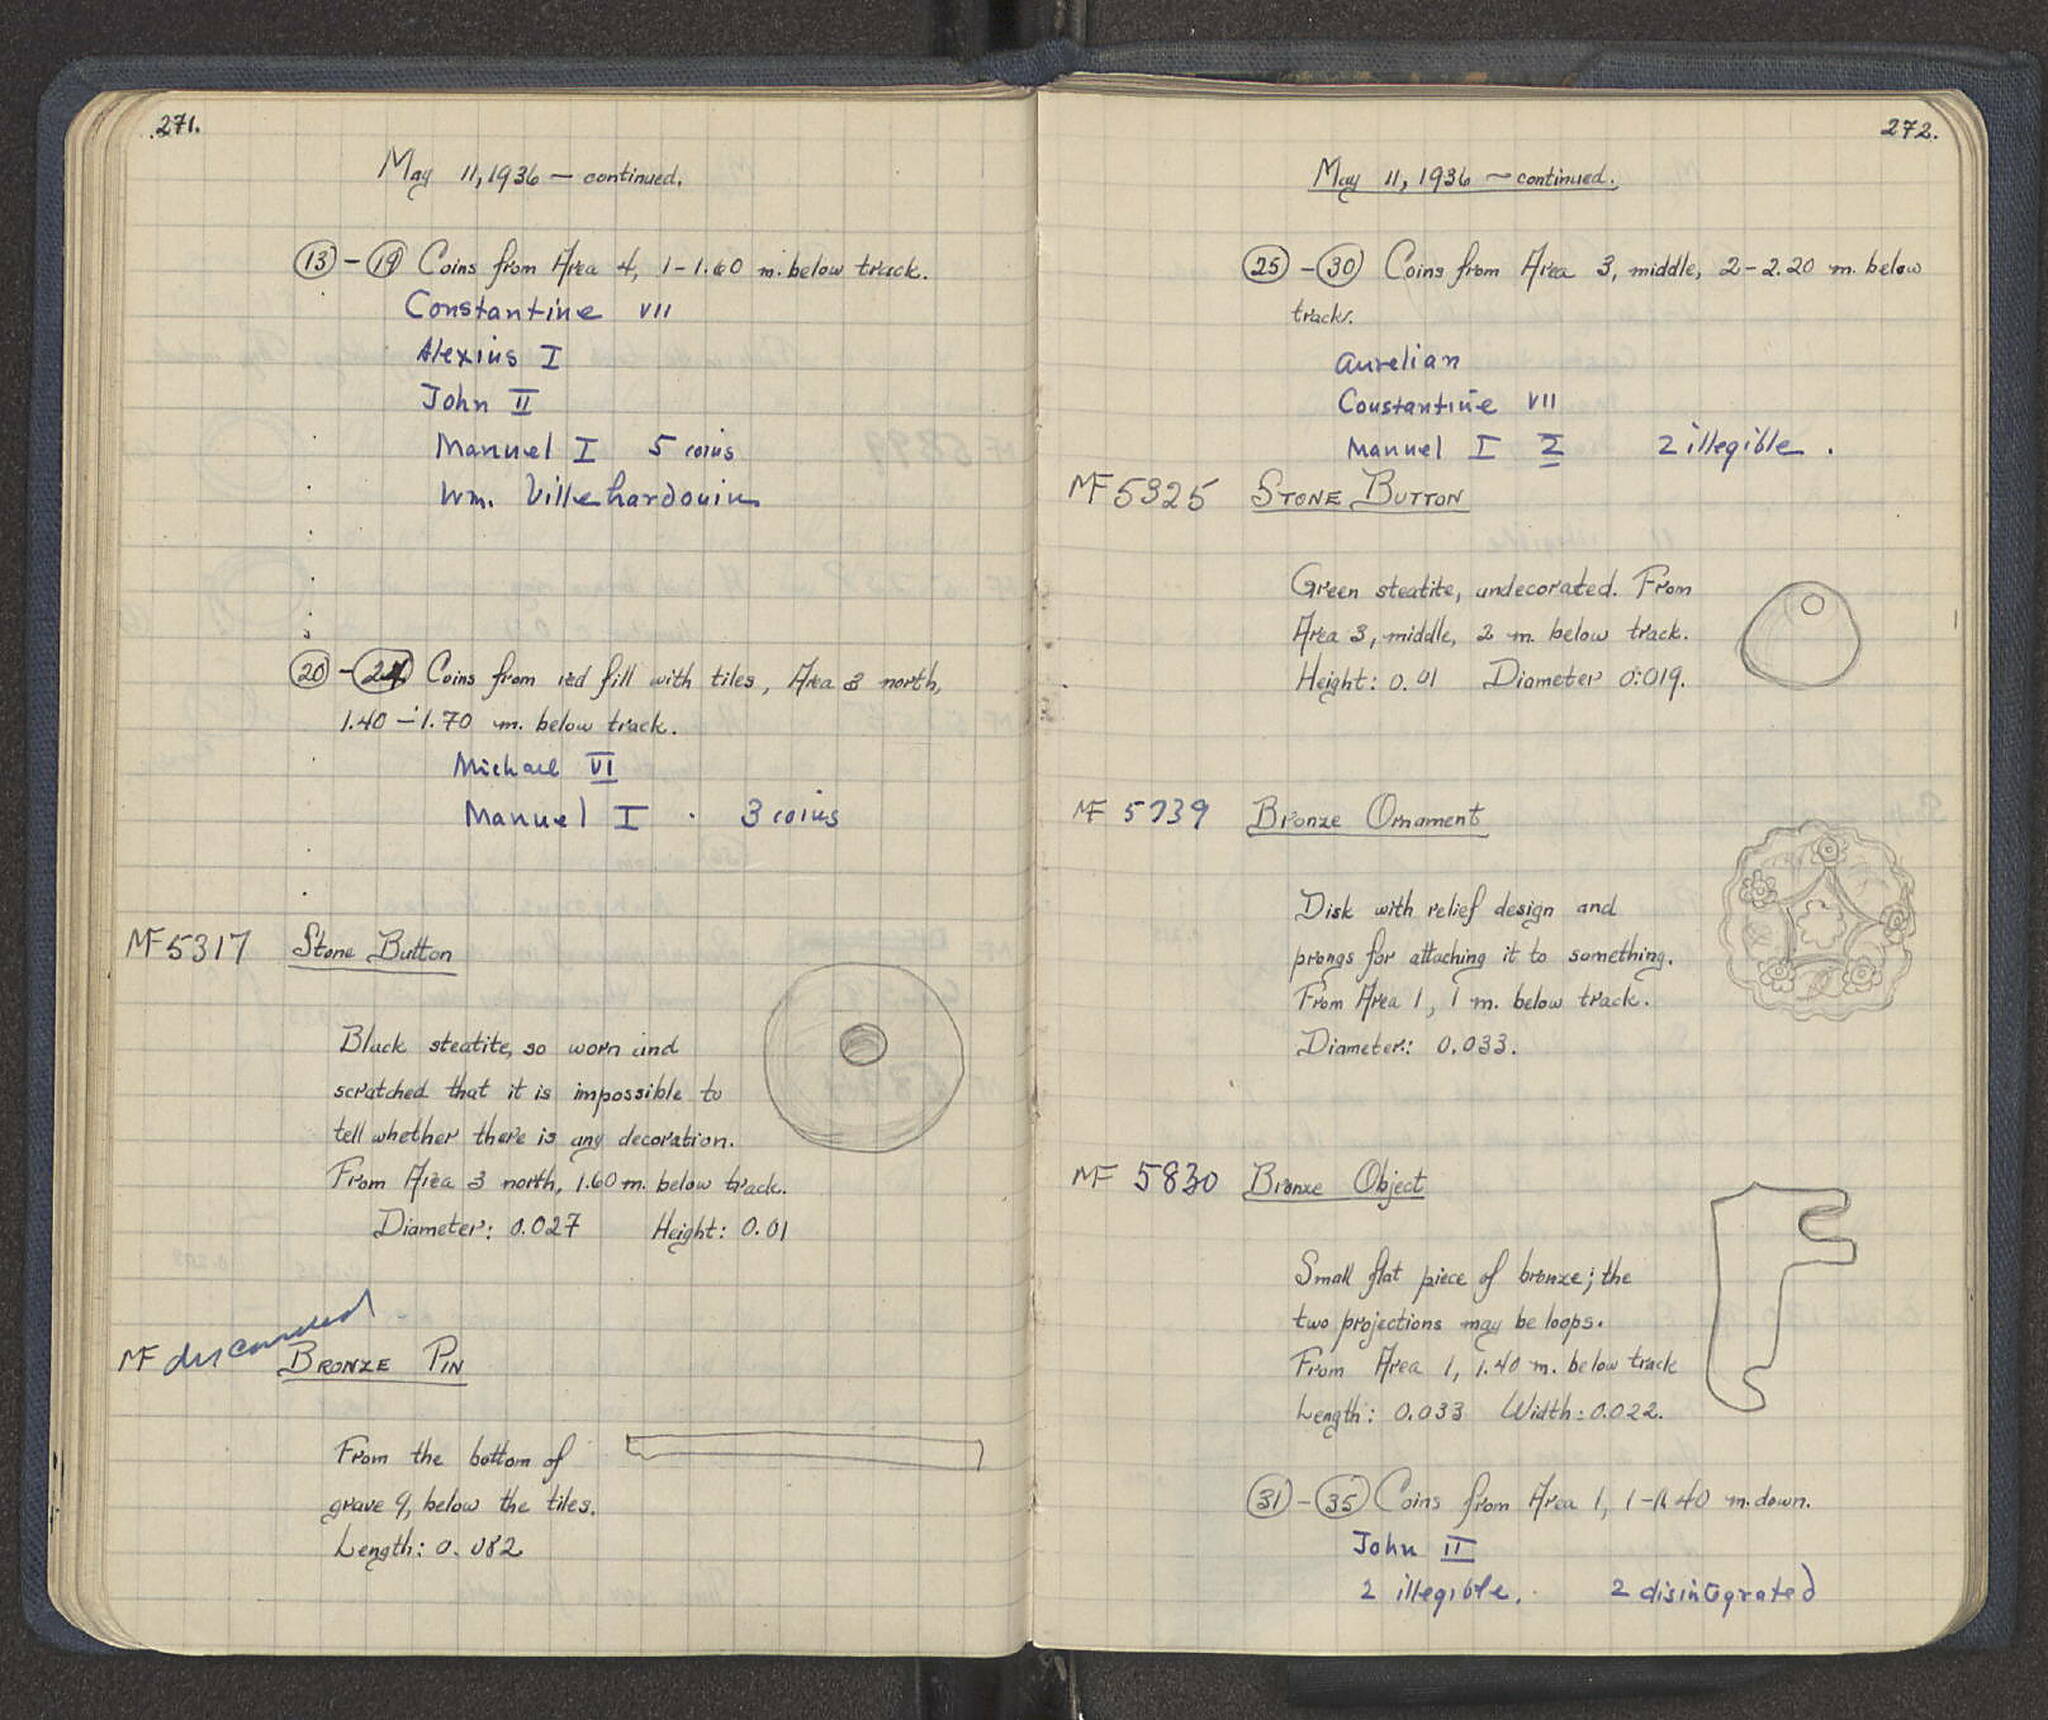 271.
May 11, 1936 — continued.
13 - 19 Coins from Area 4, 1-1.60 m. below track.
Constantine VII
Alexius I
John II
Manuel I 5 coins
Wm. Villehardouin
20 - 24 Coins from red fill with tiles, Area 3 north,
1.40 - 1.70 m. below track.
Michael VI
Manuel I . 3 coins
MF 5317 Stone Button
Black steatite, so worn and
scratched that it is impossible to
tell whether there is any decoration.
From Area 3 north, 1.60 m. below track.
Diameter: 0.027 Height: 0.01
MF discarded BRONZE PIN
From the bottom of
grave 9, below the tiles.
Length: 0.082
272.
May 11, 1936 — continued.
25 - 30 Coins from Area 3, middle, 2-2.20 m. below
track.
Aurelian
Constantine VII
Manuel I 2 2 illegible.
MF 5325 STONE BUTTON
Green steatite, undecorated. From
Area 3, middle, 2 m. below track.
Height: 0.01 Diameter 0.019.
MF 5739 Bronze Ornament
Disk with relief design and
prongs for attaching it to something.
From Area 1, 1 m. below track.
Diameter: 0.033.
MF 5830 Bronze Object
Small flat piece of bronze; the
two projections may be loops.
From Area 1, 1.40 m. below track
Length: 0.033 Width: 0.022.
31 - 35 Coins from Area 1, 1-1.40 m. down.
John II
2 illegible. 2 disintegrated